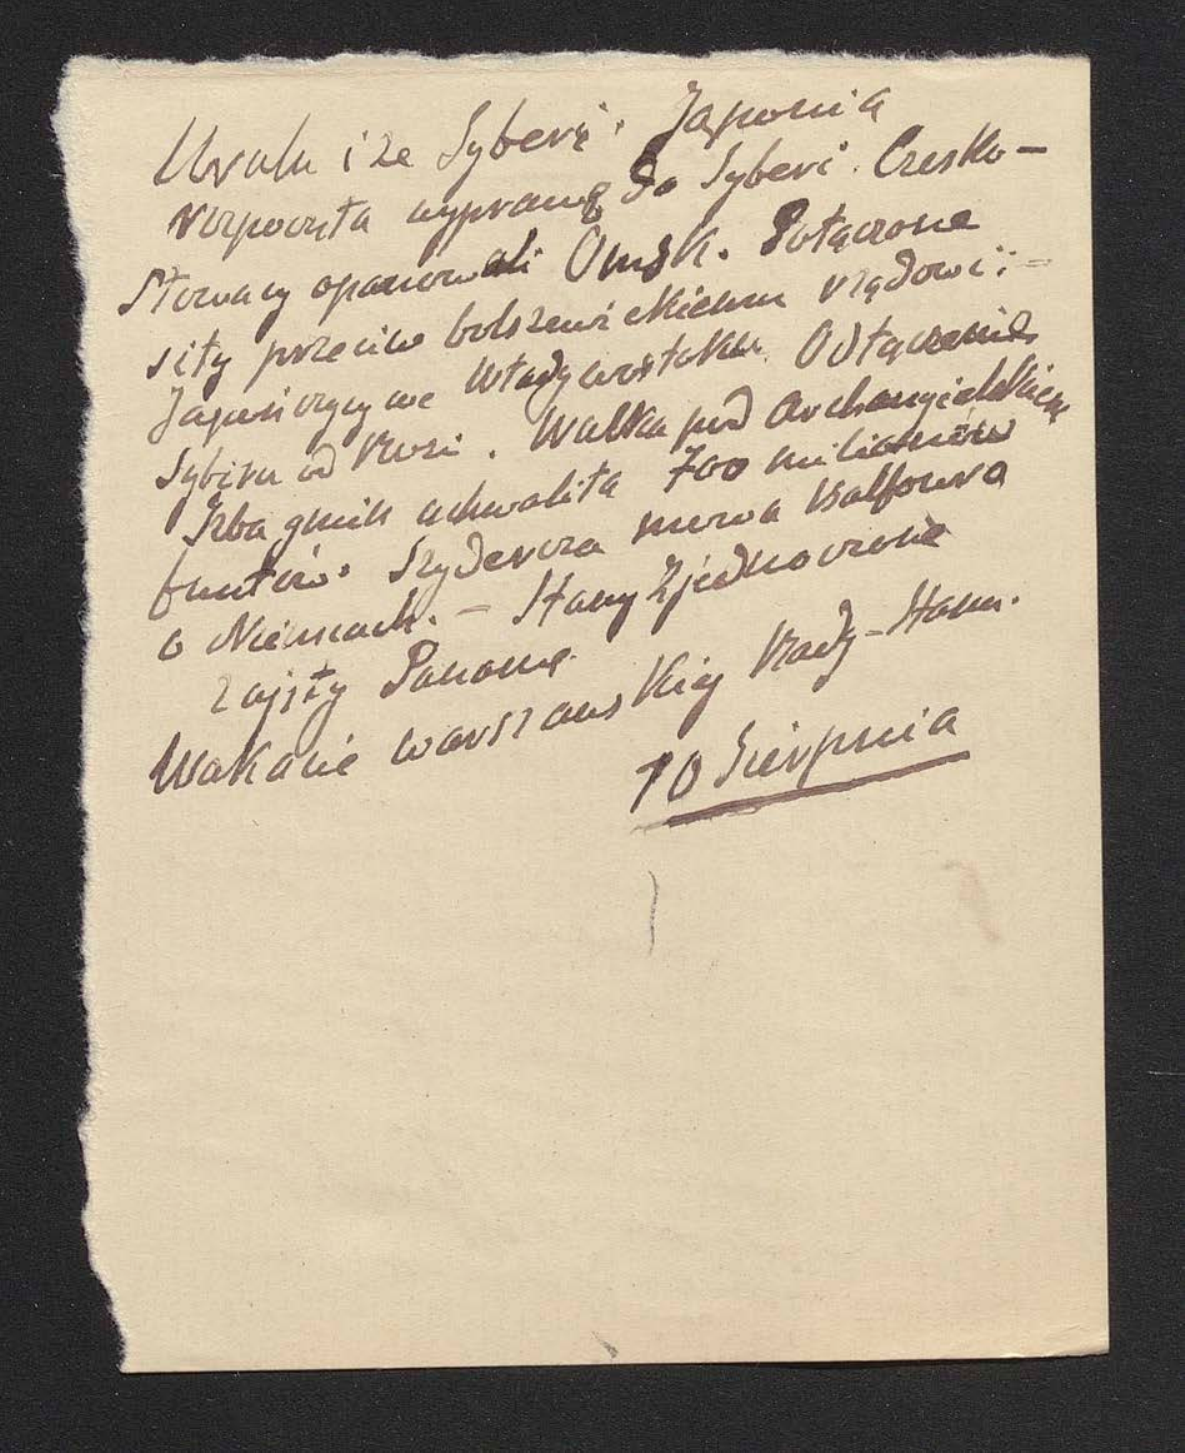 Uralu i ze Syberi. Japonia
rozpoczęła wyprawę do Syberi. Czesko-
Słowacy opanowali Omsk. Połączone
siły przeciw bolszewickiemu rządowi:
Japończycy we Władywostoku. Odłączenie
Sybiru od Rosi. Walka pod Archangielskiem
Izba gmin uchwaliła 700 milionów
funtów. Szydercza mowa Balfoura
o Niemcach. - Stany Zjednoczone
zajęły Panamę.
Wakacie warszawskiej Rady-Stanu.
10 Sierpnia